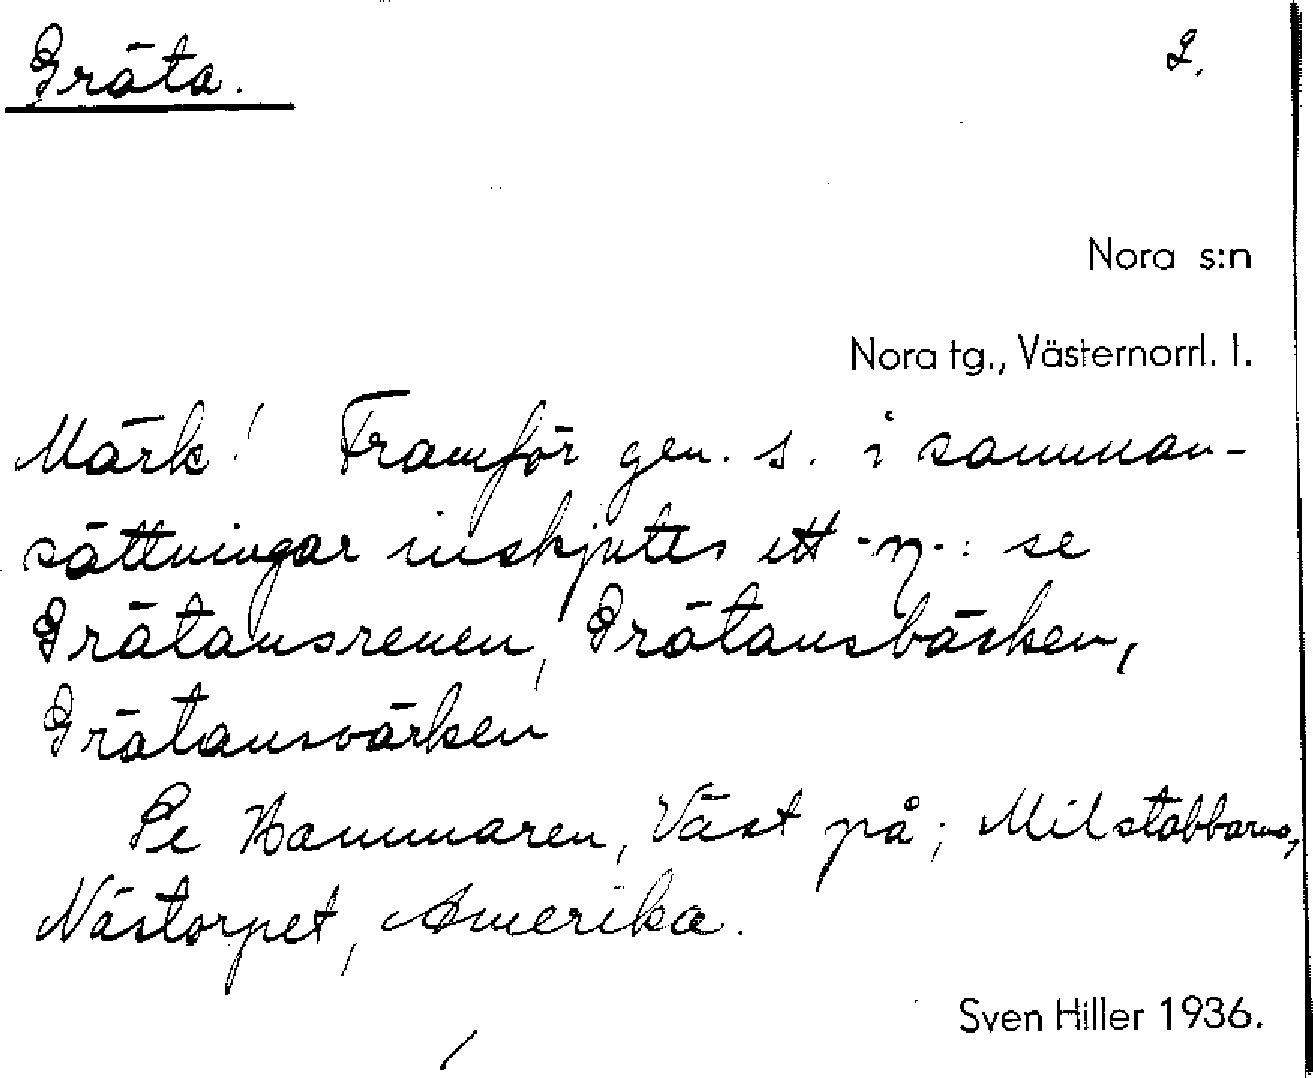 Gräta.
2.
Nora s:n
Nora tg., Västernorrl. l.
Märk! Framför gen. s. i samman-
sättningar inskjutes ett -n-: se
Grätansrenen, Grätansbäcken,
Grätansvärken
Se Hammaren, Väst på; Milstabbarna,
Nästorpet, Amerika.
Sven Hiller 1936.